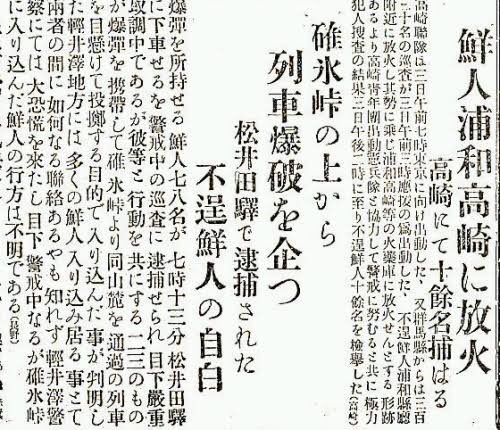 鮮人浦和高崎に放火
高崎にて十餘名捕はる
高崎聯隊は三日午前七時東京に向け出動した、又群馬縣からは三百
二十名の巡査が三日午前三時應援の爲出動した、不逞鮮人浦和縣廳
附近に放火し其勢に乘じ浦和高崎等の火藥庫に放火せんとする形跡
あるより高崎青年團出動憲兵隊と協力して警戒に努むると共に極力
犯人搜査の結果三日午後二時に至り不逞鮮人十餘名を檢擧した(高崎)
碓氷峠の上から
列車爆破を企つ
松井田驛で逮捕された
不逞鮮人の自白
爆彈を所持せる鮮人七八名が七時十三分松井田驛
に下車せるを警戒中の巡査に逮捕せられ目下嚴重
取調中であるが彼等と行動を共にする二三のもの
が爆彈を携帶して碓氷峠より同山麓を通過の列車
を目懸けて投擲する目的で入り込んだ事が判明し
た輕井澤地方には多くの鮮人入り込み居る事とて
兩者の間に如何なる聯絡あるやも知れず輕井澤警
察にては大恐慌を來たし目下警戒中なるが碓氷峠
に入り込んだ鮮人の行方は不明である(長野)